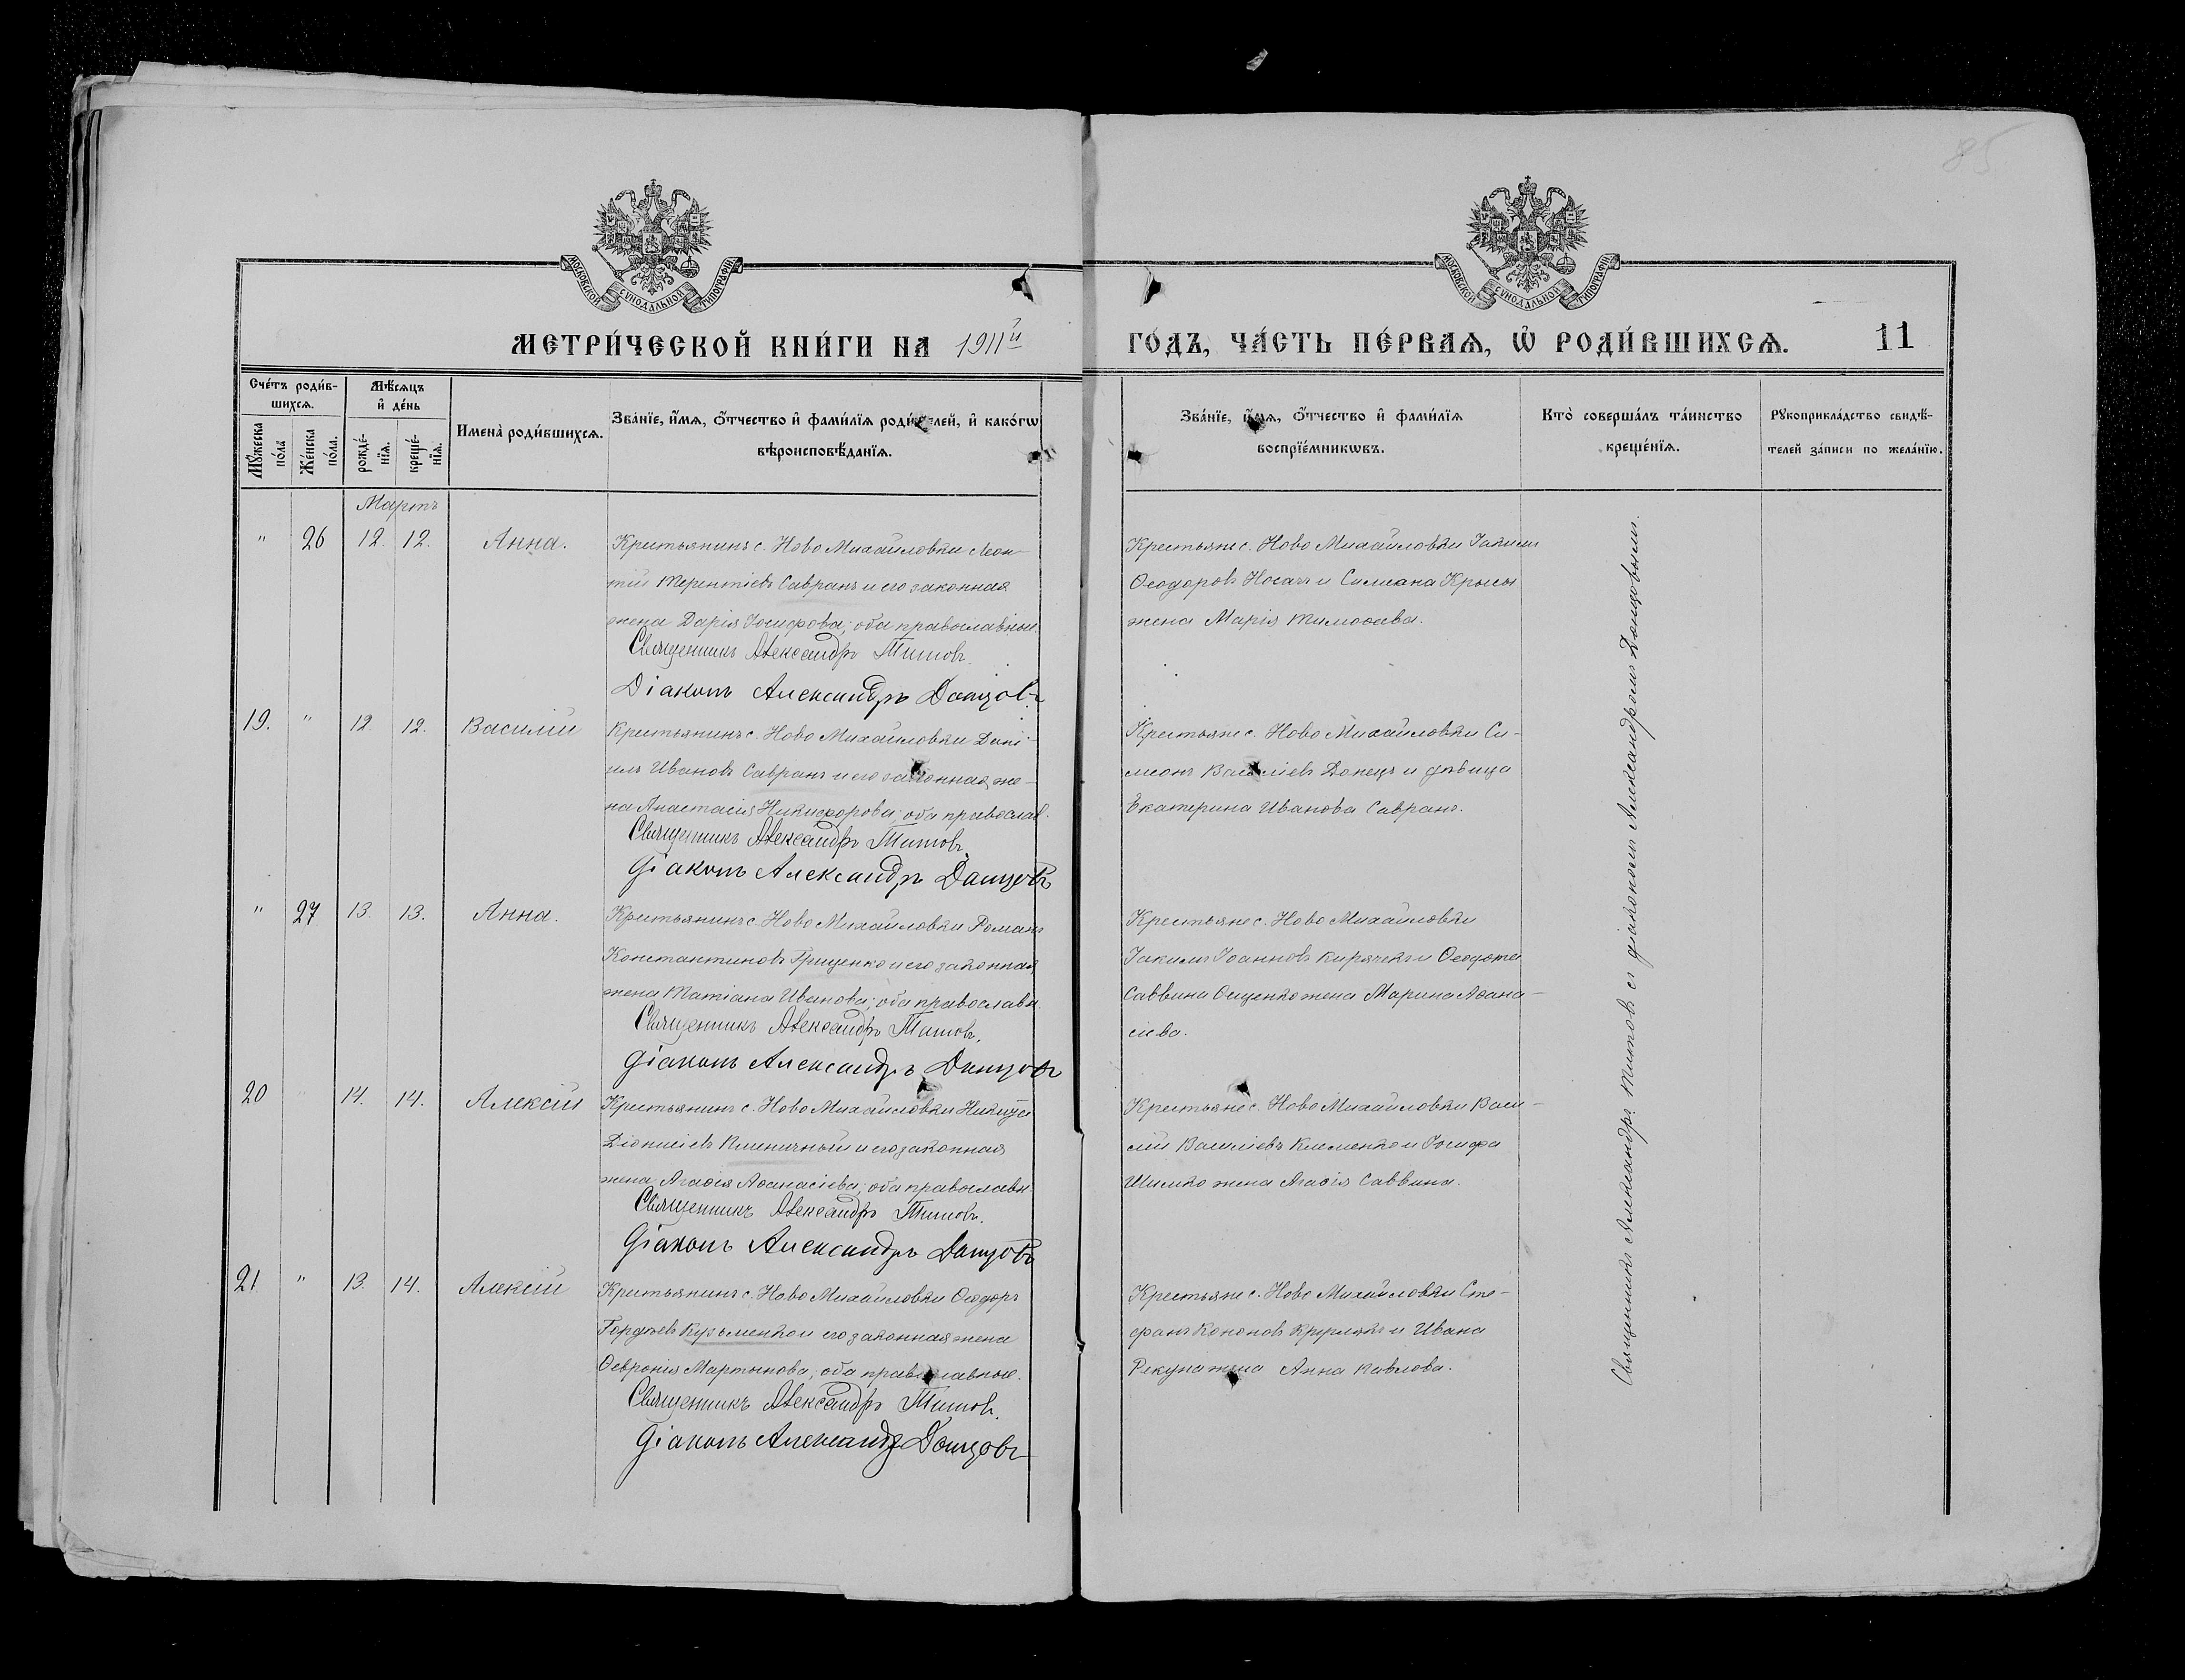 85
МОСКОВСКОЙ СѴНОДАЛЬНОЙ ТИПОГРАФІИ
МОСКОВСКОЙ СѴНОДАЛЬНОЙ ТИПОГРАФІИ
МЕТРИ́ЧЕСКОЙ КНИ́ГИ НА 1911й ГО́ДЪ, ЧА́СТЬ ПЕ́РВАѦ, Ѡ҆ РОДИ́ВШИХСѦ. 11
Сче́тъ роди́в-
шихсѧ.
Мꙋ́жеска
по́ла.
Же́нска
по́ла.
Мѣ́сѧцъ
и҆ де́нь
рожде́-
нїѧ.
креще́-
нїѧ.
Имена̀ роди́вшихсѧ.
Зва́нїе, и҆́мѧ, ѻ҆́тчество и҆ фами́лїѧ роди́телей, и҆ како́гѡ
вѣроисповѣ́данїѧ.
Зва́нїе, и҆́мѧ, ѻ҆́тчество и҆ фами́лїѧ
воспрїе́мникѡвъ.
Кто̀ соверша́лъ та́инство
креще́нїѧ.
Рꙋкоприкла́дство свидѣ́-
телей за́писи по жела́нїю.
Мартъ
" 26 12. 12. Анна.
Крестьянинъ с. Ново Михайловки Леон-
тій Терентіевъ Савранъ и его законная
жена Дарія Іосифова; оба православные.
Священникъ Александръ Титовъ.
Діаконъ Александръ Донцовъ
Крестьяне с. Ново Михайловки Іакимъ
Ѳеодоровъ Носачъ и Симеона Крысы
жена Марія Тимоѳеева.
19. " 12. 12. Василій
Крестьянинъ с. Ново Михайловки Дані-
илъ Ивановъ Савранъ и его законная же-
на Анастасія Никифорова; оба православ.
Священникъ Александръ Титовъ.
Діаконъ Александръ Донцовъ
Крестьяне с. Ново Михайловки Си-
меонъ Василіевъ Донецъ и дѣвица
Екатерина Иванова Савранъ.
" 27 13. 13. Анна.
Крестьянинъ с. Ново Михайловки Романъ
Константиновъ Гриценко и его законная
жена Татіана Иванова; оба православн.
Священникъ Александръ Титовъ.
Діаконъ Александръ Донцовъ
Крестьяне с. Ново Михайловки
Іакимъ Іоанновъ Кирячекъ и Ѳеодота
Саввина Ощенко жена Марина Аѳана-
сіева.
20 14. 14. Алексій
Крестьянинъ с. Ново Михайловки Никита
Діонисіевъ Пшеничный и его законная
жена Агаѳія Аѳанасіева; оба православн.
Священникъ Александръ Титовъ.
Діаконъ Александръ Донцовъ
Крестьяне с. Ново Михайловки Васи-
лій Василіевъ Клименко и Іосифа
Шимко жена Агаѳія Саввина.
21 " 13. 14. Алексій
Крестьянинъ с. Ново Михайловки Ѳеодоръ
Гордѣевъ Кузьменко и его законная жена
Ѳевронія Мартынова; оба православные.
Священникъ Александръ Титовъ.
Діаконъ Александръ Донцовъ
Крестьяне с. Ново Михайловки Сте-
фанъ Кононовъ Круглякъ и Ивана
Рекуна жена Анна Павлова.
Священникъ Александръ Титовъ съ діакономъ Александромъ Донцовымъ.